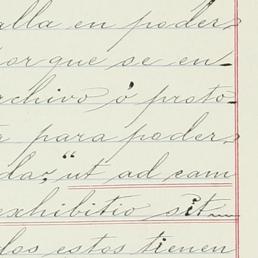 alla en poder
or que se en_
rchivo ó proto_
a para poder
da, "ut ad cam
exhibitio sit_
dos estos tienen